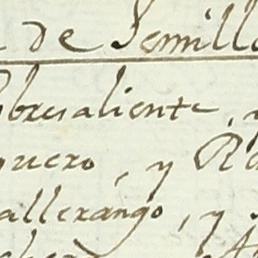 de Semill
obresaliente, y
quero, y Re
allerango, y